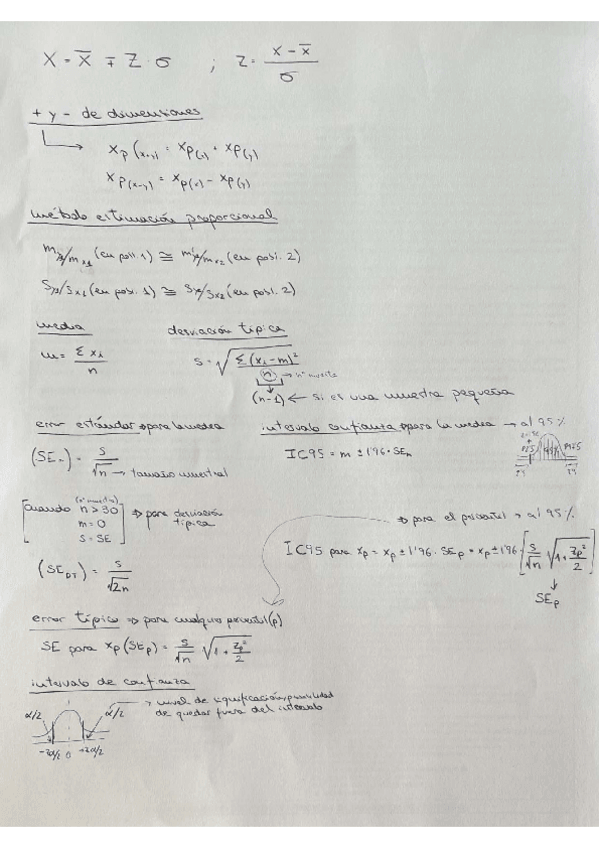 X = X̄ ∓ Z · σ ; Z = (x - x̄) / σ
+ y - de dimensiones
Xp(x+y) = Xp(x) + Xp(y)
Xp(x-y) = Xp(x) - Xp(y)
método estimación proporcional
(en posi. 1) ≅ (en posi. 2)
(en posi. 1) ≅ (en posi. 2)
media
m = Σ xi / n
desviación típica
s = √(Σ (xi - m)² / n) → nº muestra
(n-1) ← si es una muestra pequeña
error estándar ⇒ para la media
= s / √n → tamaño muestral
intervalo confianza ⇒ para la media → al 95%
IC95 = m ± 1'96 · SEm
[cuando (nº muestra) n > 30
m = 0
s = SE] ⇒ para desviación típica
(SE DT) = s / √2n
⇒ para el percentil → al 95%
IC95 para xp = xp ± 1'96 · SEp = xp ± 1'96 · [s/√n √(1 + Zp²/2)]
SEp
error típico ⇒ para cualquier percentil (p)
SE para xp (SEp) = s/√n √(1 + Zp²/2)
intervalo de confianza
→ nivel de significación, probabilidad
de quedar fuera del intervalo
α/2 α/2
-zα/2 0 +zα/2